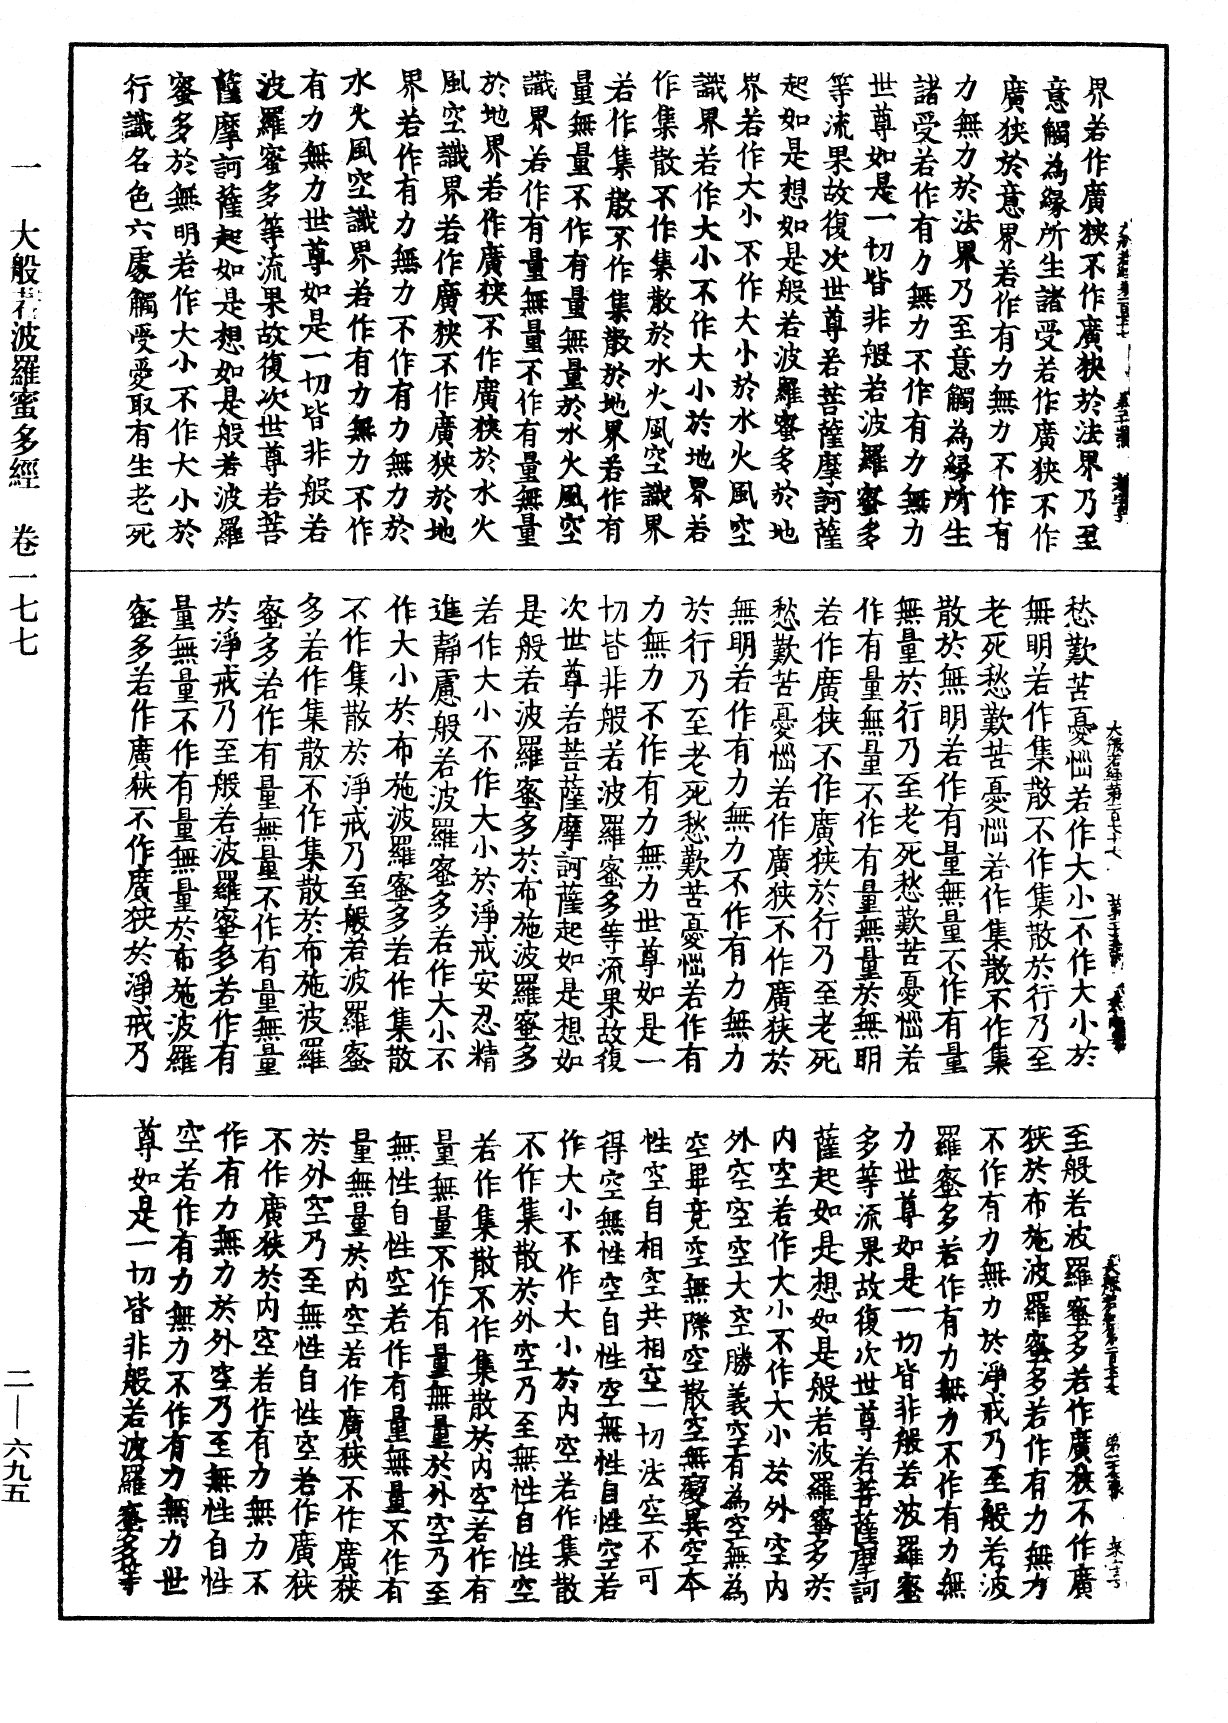 界若作廣狹不作廣狹於法界乃至
意觸為緣所生諸受若作廣狹不作
廣狹於意界若作有力無力不作有
力無力於法界乃至意觸為緣所生
諸受若作有力無力不作有力無力
世尊如是一切皆非般若波羅蜜多
等流果故復次世尊若菩薩摩訶薩
起如是想如是般若波羅蜜多於地
界若作大小不作大小於水火風空
識界若作大小不作大小於地界若
作集散不作集散於水火風空識界
若作集散不作集散於地界若作有
量無量不作有量無量於水火風空
識界若作有量無量不作有量無量
於地界若作廣狹不作廣狹於水火
風空識界若作廣狹不作廣狹於地
界若作有力無力不作有力無力於
水火風空識界若作有力無力不作
有力無力世尊如是一切皆非般若
波羅蜜多等流果故復次世尊若菩
薩摩訶薩起如是想如是般若波羅
蜜多於無明若作大小不作大小於
行識名色六處觸受愛取有生老死
愁歎苦憂惱若作大小不作大小於
無明若作集散不作集散於行乃至
老死愁歎苦憂惱若作集散不作集
散於無明若作有量無量不作有量
無量於行乃至老死愁歎苦憂惱若
作有量無量不作有量無量於無明
若作廣狹不作廣狹於行乃至老死
愁歎苦憂惱若作廣狹不作廣狹於
無明若作有力無力不作有力無力
於行乃至老死愁歎苦憂惱若作有
力無力不作有力無力世尊如是一
切皆非般若波羅蜜多等流果故復
次世尊若菩薩摩訶薩起如是想如
是般若波羅蜜多於布施波羅蜜多
若作大小不作大小於淨戒安忍精
進靜慮般若波羅蜜多若作大小不
作大小於布施波羅蜜多若作集散
不作集散於淨戒乃至般若波羅蜜
多若作集散不作集散於布施波羅
蜜多若作有量無量不作有量無量
於淨戒乃至般若波羅蜜多若作有
量無量不作有量無量於布施波羅
蜜多若作廣狹不作廣狹於淨戒乃
至般若波羅蜜多若作廣狹不作廣
狹於布施波羅蜜多若作有力無力
不作有力無力於淨戒乃至般若波
羅蜜多若作有力無力不作有力無
力世尊如是一切皆非般若波羅蜜
多等流果故復次世尊若菩薩摩訶
薩起如是想如是般若波羅蜜多於
內空若作大小不作大小於外空內
外空空空大空勝義空有為空無為
空畢竟空無際空散空無變異空本
性空自相空共相空一切法空不可
得空無性空自性空無性自性空若
作大小不作大小於內空若作集散
不作集散於外空乃至無性自性空
若作集散不作集散於內空若作有
量無量不作有量無量於外空乃至
無性自性空若作有量無量不作有
量無量於內空若作廣狹不作廣狹
於外空乃至無性自性空若作廣狹
不作廣狹於內空若作有力無力不
作有力無力於外空乃至無性自性
空若作有力無力不作有力無力世
尊如是一切皆非般若波羅蜜多等
大般若經第一百七十七
一 大般若波羅蜜多經 卷一七七
二—六九五